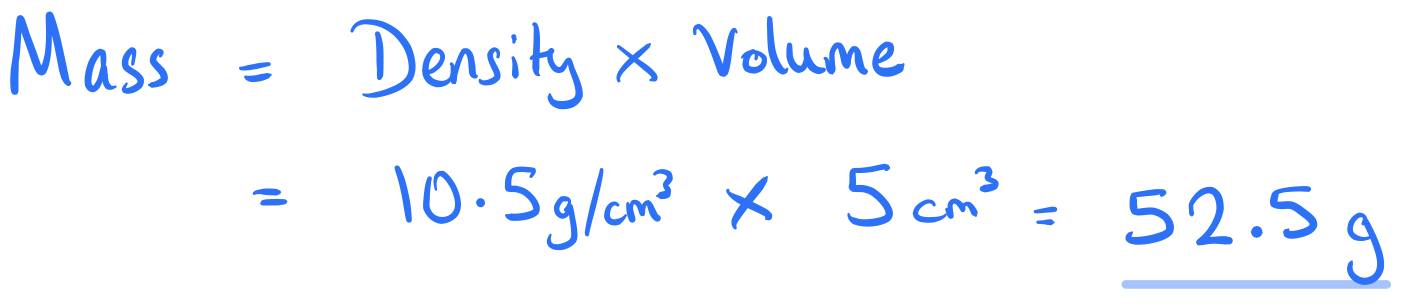 Mass = Density × Volume
= 10.5g/cm³ × 5cm³ = 52.5g